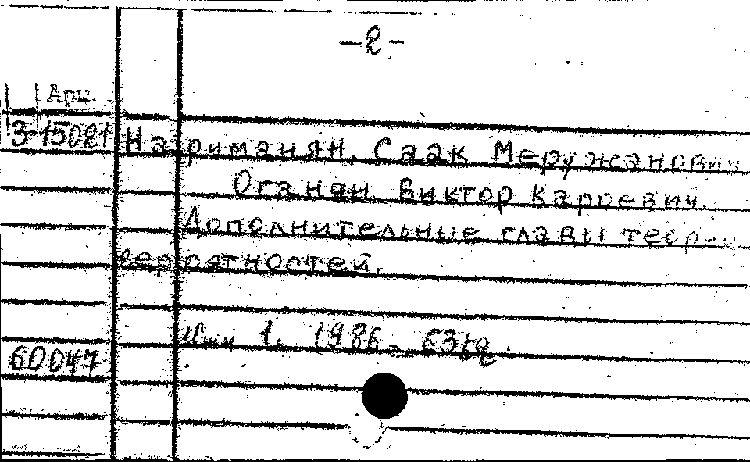 -2-
Арц.
3-15021 Нариманян, Саак Меружанович
Оганян, Виктор Карпевич.
Дополнительные главы теор-
вероятностей.
1. 1986
60047